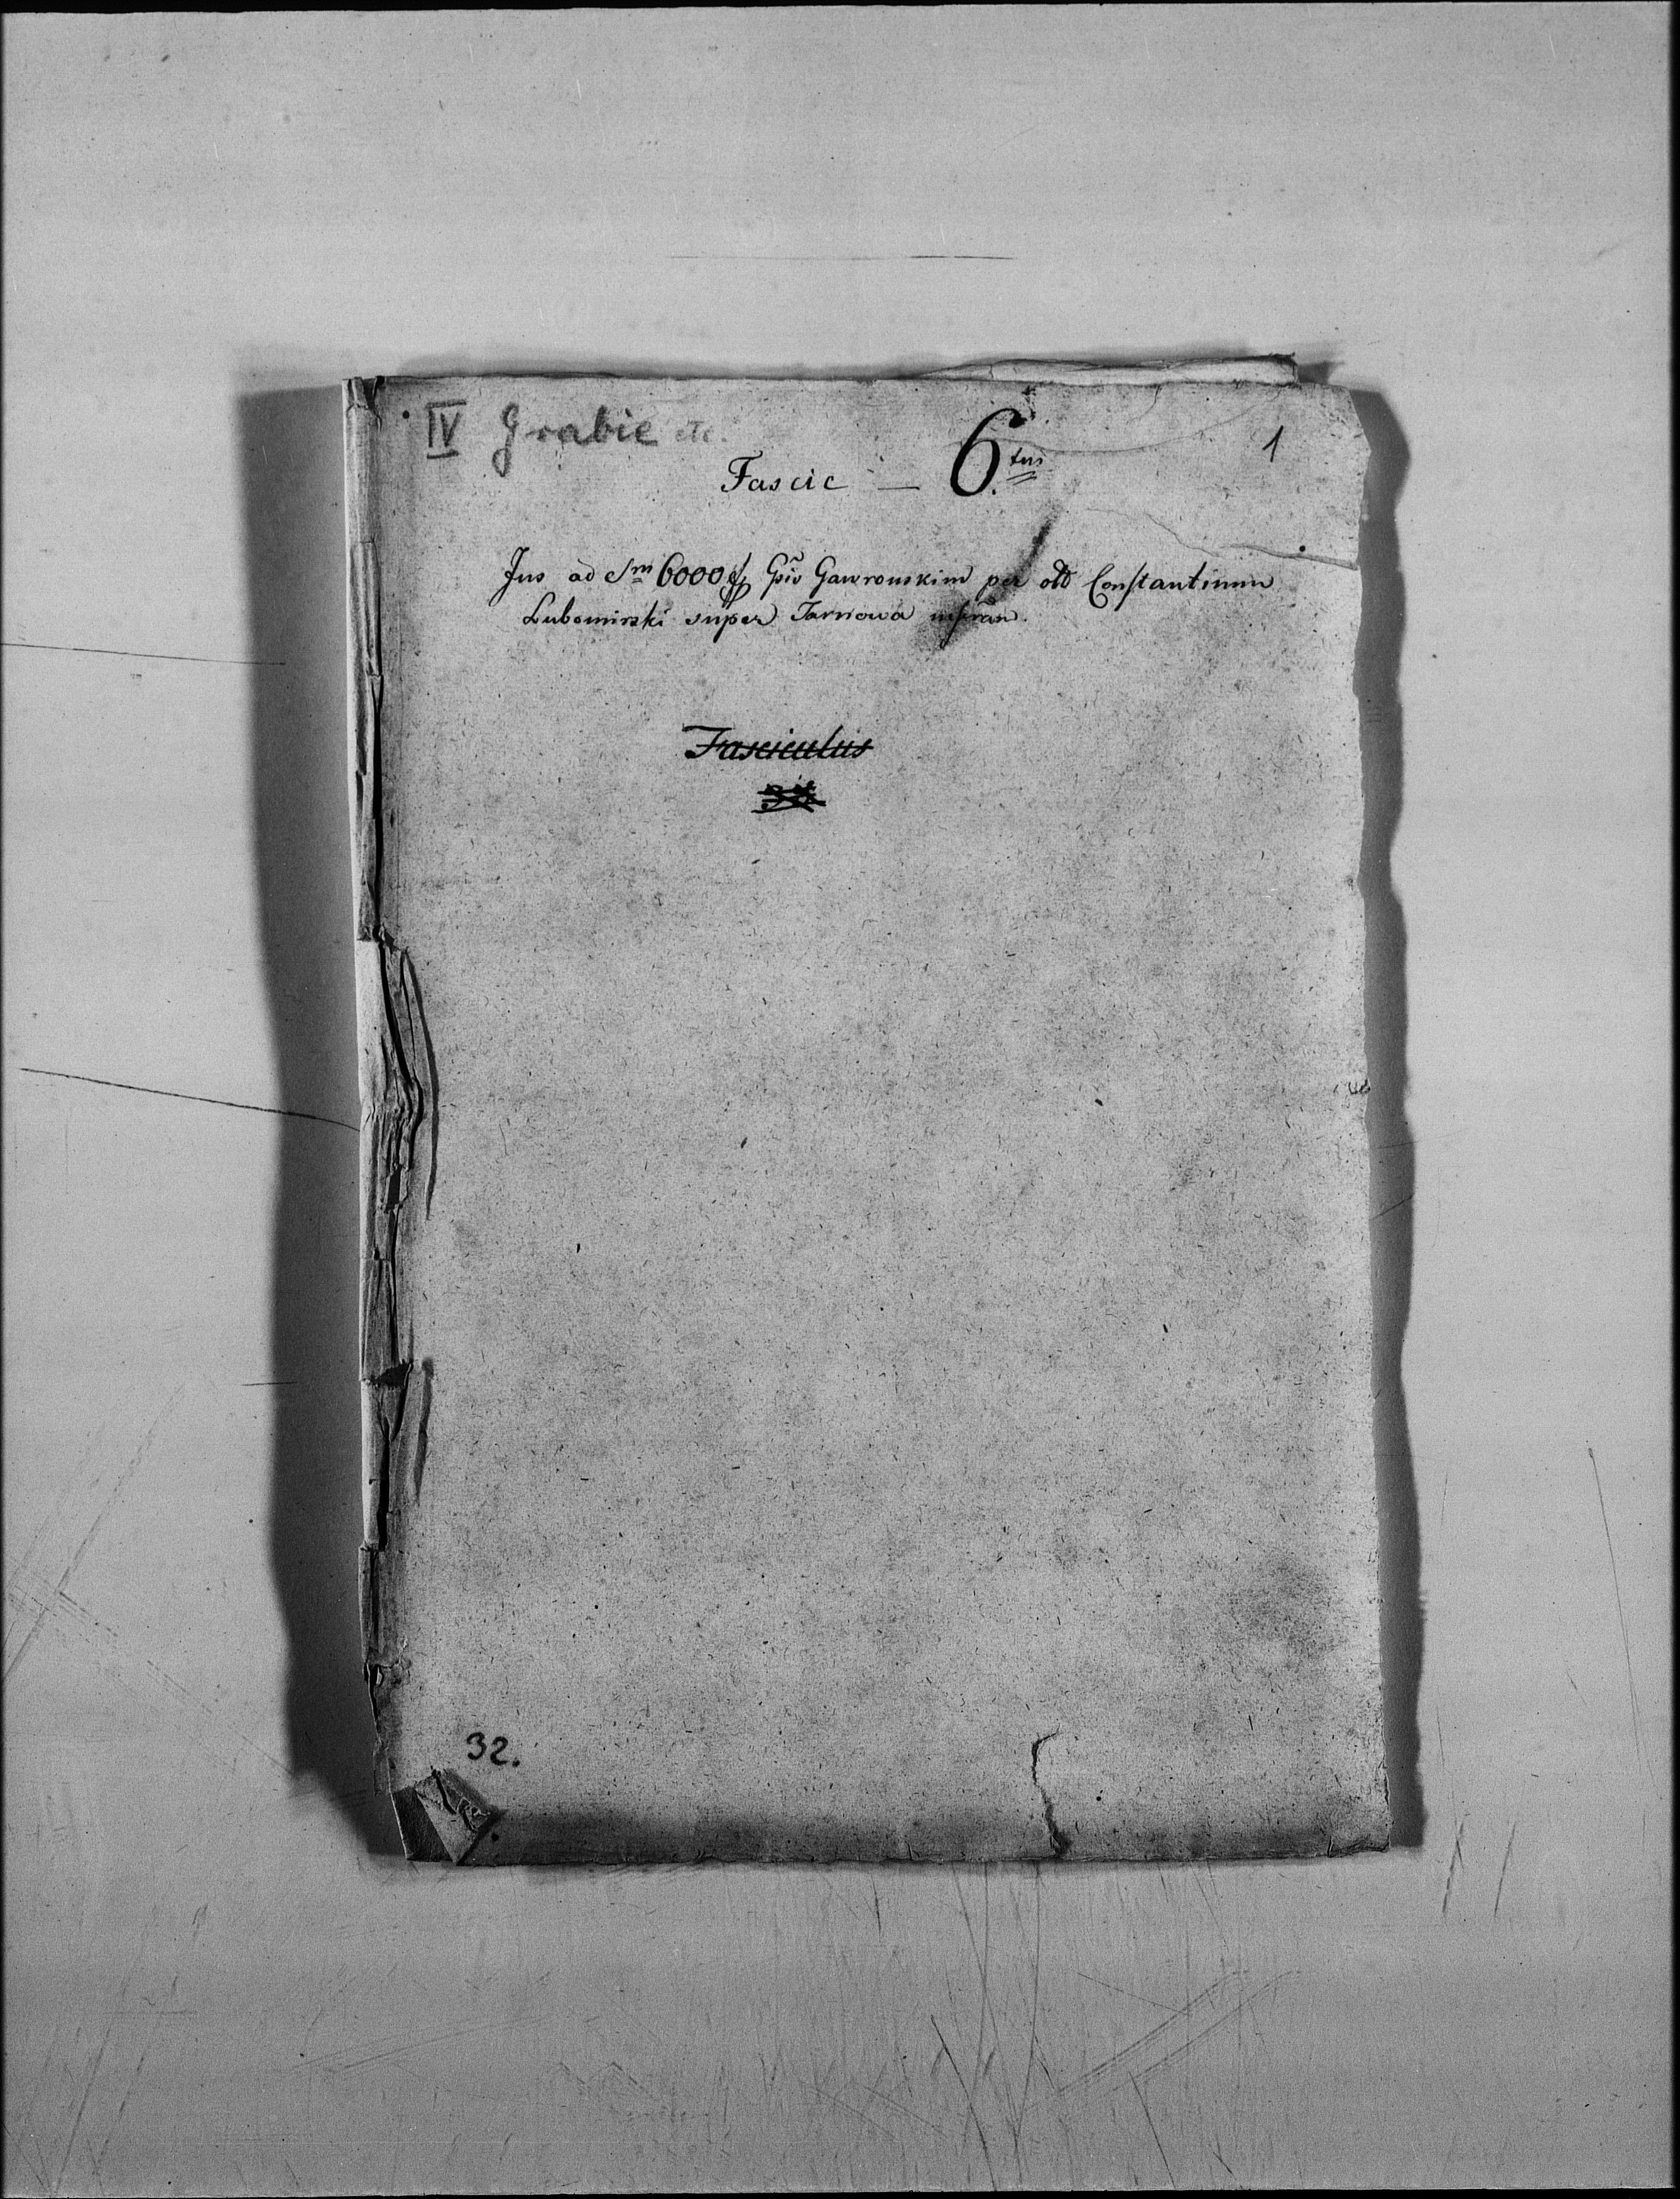 IV Grabie etc.
1
Fascic — 6.tus
Jus ad Sm 6000 Gsis Gawronskim per olt Constantinum
Lubomirski super Tarnowa
Fasciculus
32.